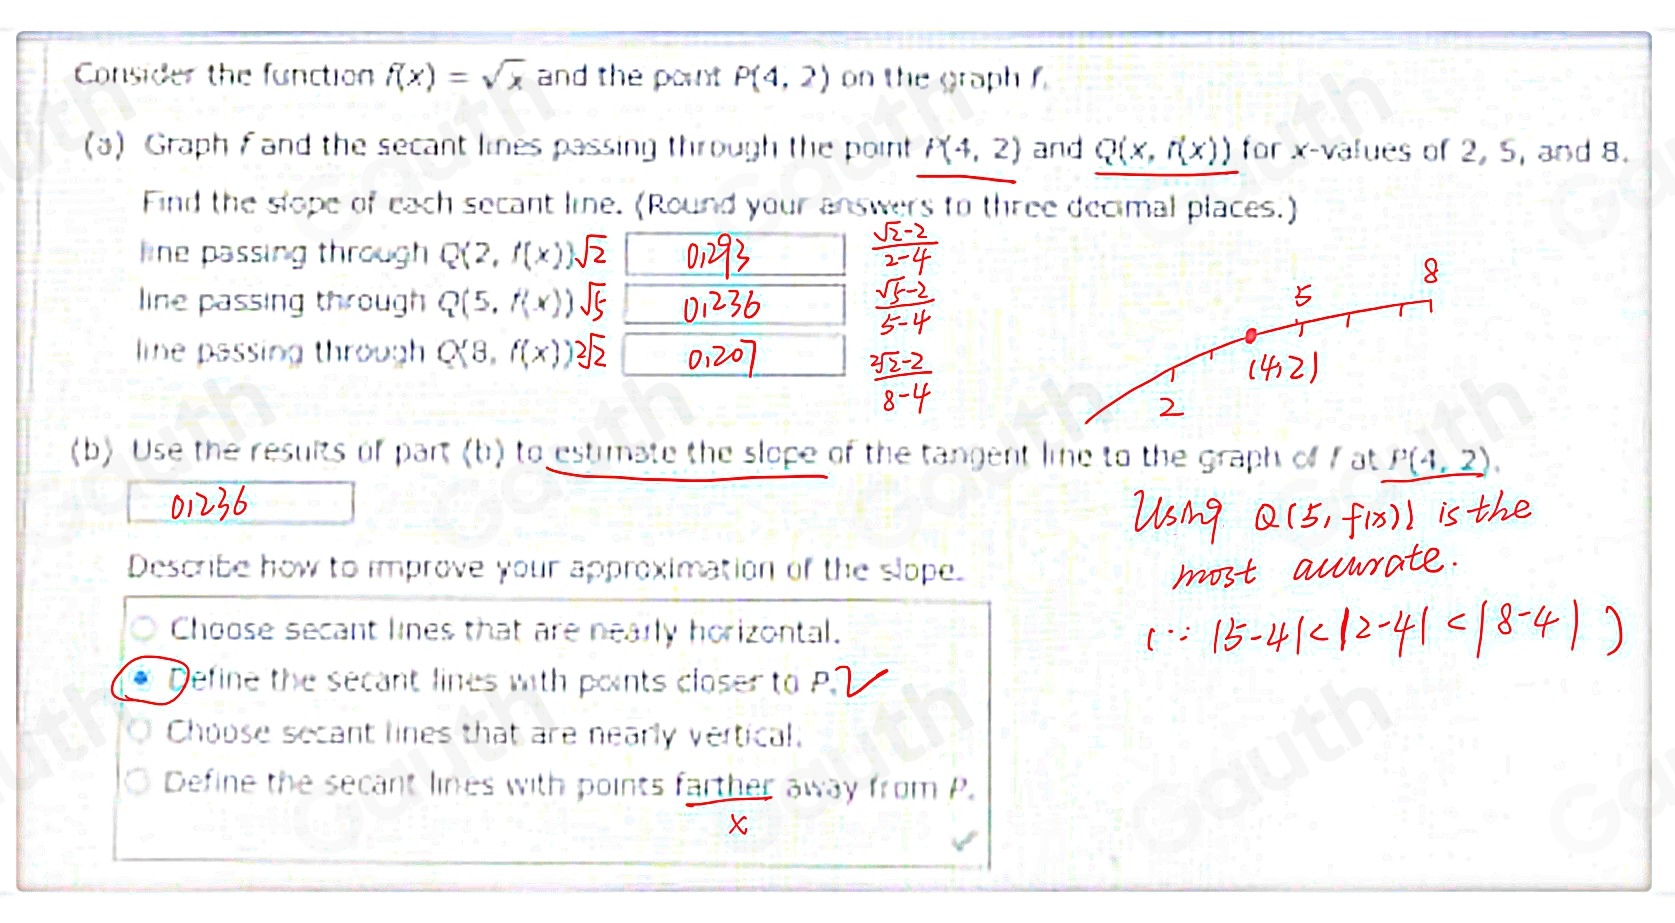 Consider the function f(x) = √x and the point P(4, 2) on the graph f.
(a) Graph f and the secant lines passing through the point P(4, 2) and Q(x, f(x)) for x-values of 2, 5, and 8.
Find the slope of each secant line. (Round your answers to three decimal places.)
line passing through Q(2, f(x)) √2 0,293 (√2-2)/(2-4)
line passing through Q(5, f(x)) √5 0,236 (√5-2)/(5-4)
line passing through Q(8, f(x)) 2√2 0,207 (2√2-2)/(8-4)
2 (4,2) 5 8
(b) Use the results of part (b) to estimate the slope of the tangent line to the graph of f at P(4, 2).
0,236
Using Q(5, f(x)) is the
most accurate.
(∵ |5-4|<|2-4|<|8-4|)
Describe how to improve your approximation of the slope.
Choose secant lines that are nearly horizontal.
Define the secant lines with points closer to P.
Choose secant lines that are nearly vertical.
Define the secant lines with points farther away from P.
x
Gauth